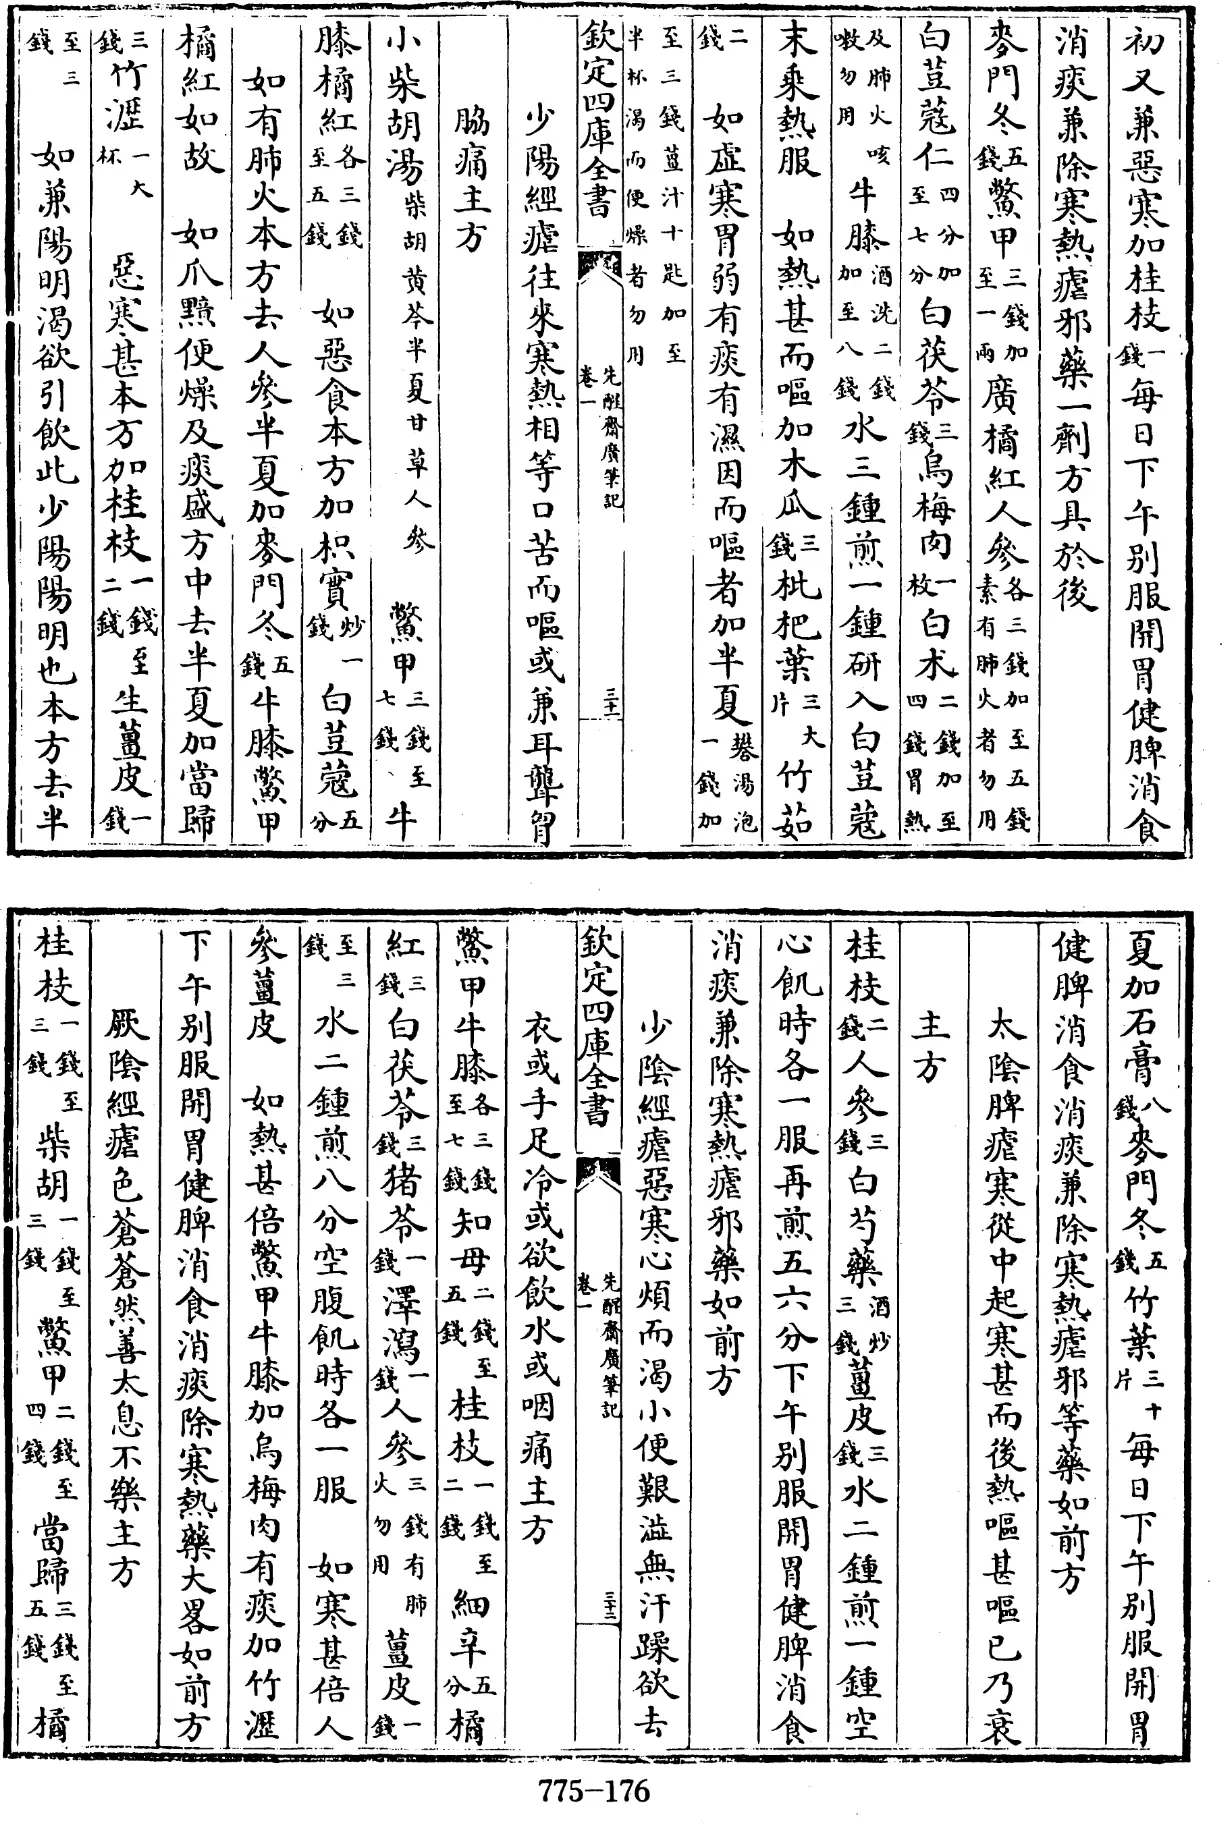 初又兼惡寒加桂枝一錢每日下午別服開胃健脾消食
消痰兼除寒熱瘧邪藥一劑方具於後
麥門冬五錢鱉甲三錢加至一兩廣橘紅人參各三錢加至五錢素有肺火者勿用
白荳蔻仁四分加至七分白茯苓三錢烏梅肉一枚白朮二錢加至四錢胃熱
及肺火咳嗽勿用牛膝酒洗二錢加至八錢水三鍾煎一鍾研入白荳蔻
末乘熱服　如熱甚而嘔加木瓜三錢枇杷葉三大片竹茹
二錢　如虛寒胃弱有痰有濕因而嘔者加半夏礬湯泡一錢加
至三錢薑汁十匙加至半杯渴而便燥者勿用
欽定四庫全書　先醒齋廣筆記　卷一　三十一
少陽經瘧往來寒熱相等口苦而嘔或兼耳聾胷
脇痛主方
小柴胡湯柴胡黄芩半夏甘草人參　鱉甲三錢至七錢、牛
膝橘紅各三錢至五錢　如惡食本方加枳實炒一錢白荳蔻五分
如有肺火本方去人參半夏加麥門冬五錢牛膝鱉甲
橘紅如故　如爪黯便燥及痰盛方中去半夏加當歸
三錢竹瀝一大杯　惡寒甚本方加桂枝一錢至二錢生薑皮一錢
至三錢　如兼陽明渴欲引飲此少陽陽明也本方去半
夏加石膏八錢麥門冬五錢竹葉三十片每日下午別服開胃
健脾消食消痰兼除寒熱瘧邪等藥如前方
太陰脾瘧寒從中起寒甚而後熱嘔甚嘔已乃衰
主方
桂枝二錢人參三錢白芍藥酒炒三錢薑皮三錢水二鍾煎一鍾空
心飢時各一服再煎五六分下午別服開胃健脾消食
消痰兼除寒熱瘧邪藥如前方
少陰經瘧惡寒心煩而渴小便艱澁無汗躁欲去
欽定四庫全書　先醒齋廣筆記　卷一　三十二
衣或手足冷或欲飲水或咽痛主方
鱉甲牛膝各三錢至七錢知母二錢至五錢桂枝一錢至二錢細辛五分橘
紅三錢白茯苓三錢猪苓一錢澤瀉一錢人參三錢有肺火勿用薑皮一錢
至三錢水二鍾煎八分空腹飢時各一服　如寒甚倍人
參薑皮　如熱甚倍鱉甲牛膝加烏梅肉有痰加竹瀝
下午別服開胃健脾消食消痰除寒熱藥大畧如前方
厥陰經瘧色蒼蒼然善太息不樂主方
桂枝一錢至三錢柴胡一錢至三錢鱉甲二錢至四錢當歸三錢至五錢橘
775-176